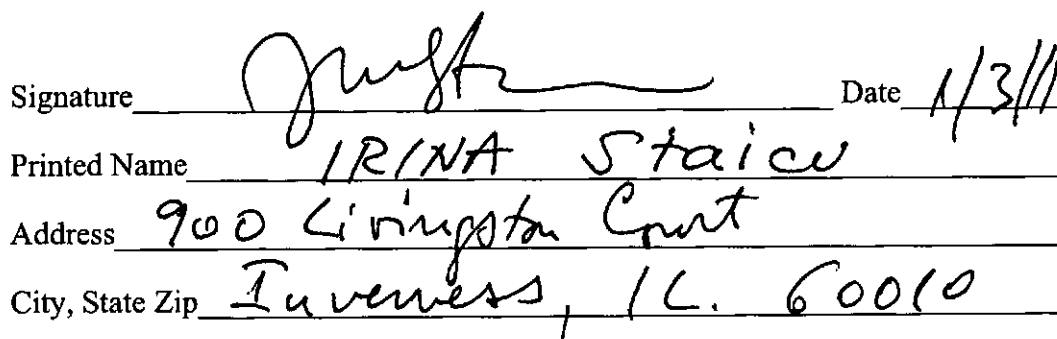 Signature Date 1/3/11
Printed Name IRINA Staicu
Address 900 Livingston Court
City, State Zip Inverness, IL. 60010